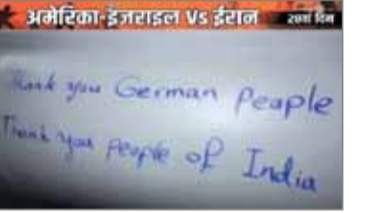 अमेरिका-इजराइल VS ईरान 28वां दिन
Thank you German people
Thank you people of India